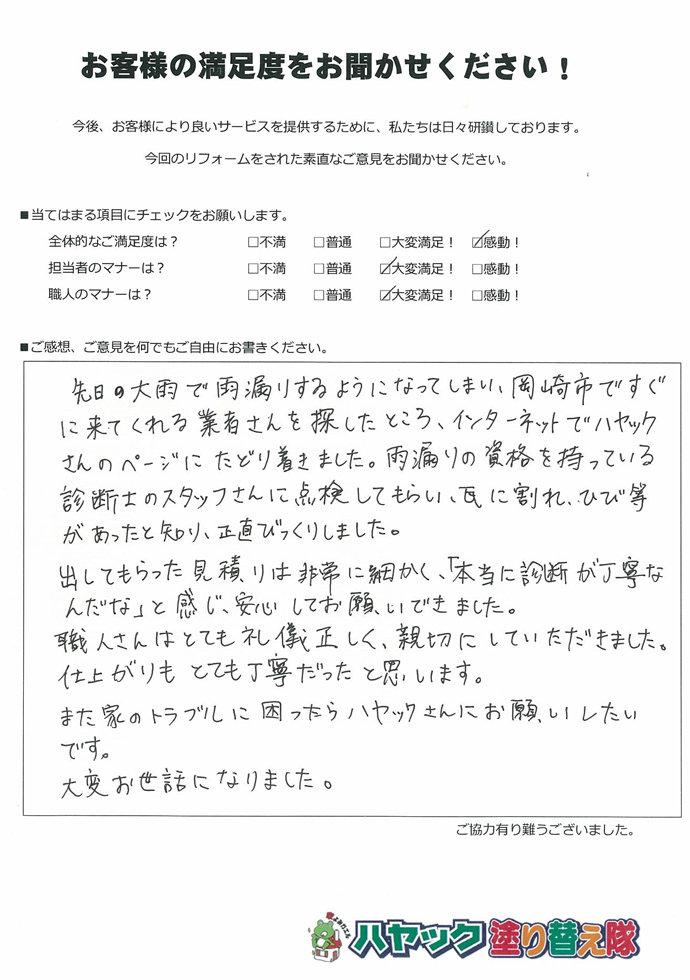 お客様の満足度をお聞かせください！
今後、お客様により良いサービスを提供するために、私たちは日々研鑽しております。
今回のリフォームをされた素直なご意見をお聞かせください。
■当てはまる項目にチェックをお願いします。
全体的なご満足度は？ □不満 □普通 □大変満足！ ☑感動！
担当者のマナーは？ □不満 □普通 ☑大変満足！ □感動！
職人のマナーは？ □不満 □普通 ☑大変満足！ □感動！
■ご感想、ご意見を何でもご自由にお書きください。
先日の大雨で雨漏りするようになってしまい、岡崎市ですぐ
に来てくれる業者さんを探したところ、インターネットでハヤック
さんのページにたどり着きました。雨漏りの資格を持っている
診断士のスタッフさんに点検してもらい、瓦に割れ、ひび等
があったと知り、正直びっくりしました。
出してもらった見積りは非常に細かく、「本当に診断が丁寧な
んだな」と感じ、安心してお願いできました。
職人さんはとても礼儀正しく、親切にしていただきました。
仕上がりもとても丁寧だったと思います。
また家のトラブルに困ったらハヤックさんにお願いしたい
です。
大変お世話になりました。
ご協力有り難うございました。
ハヤック塗り替え隊